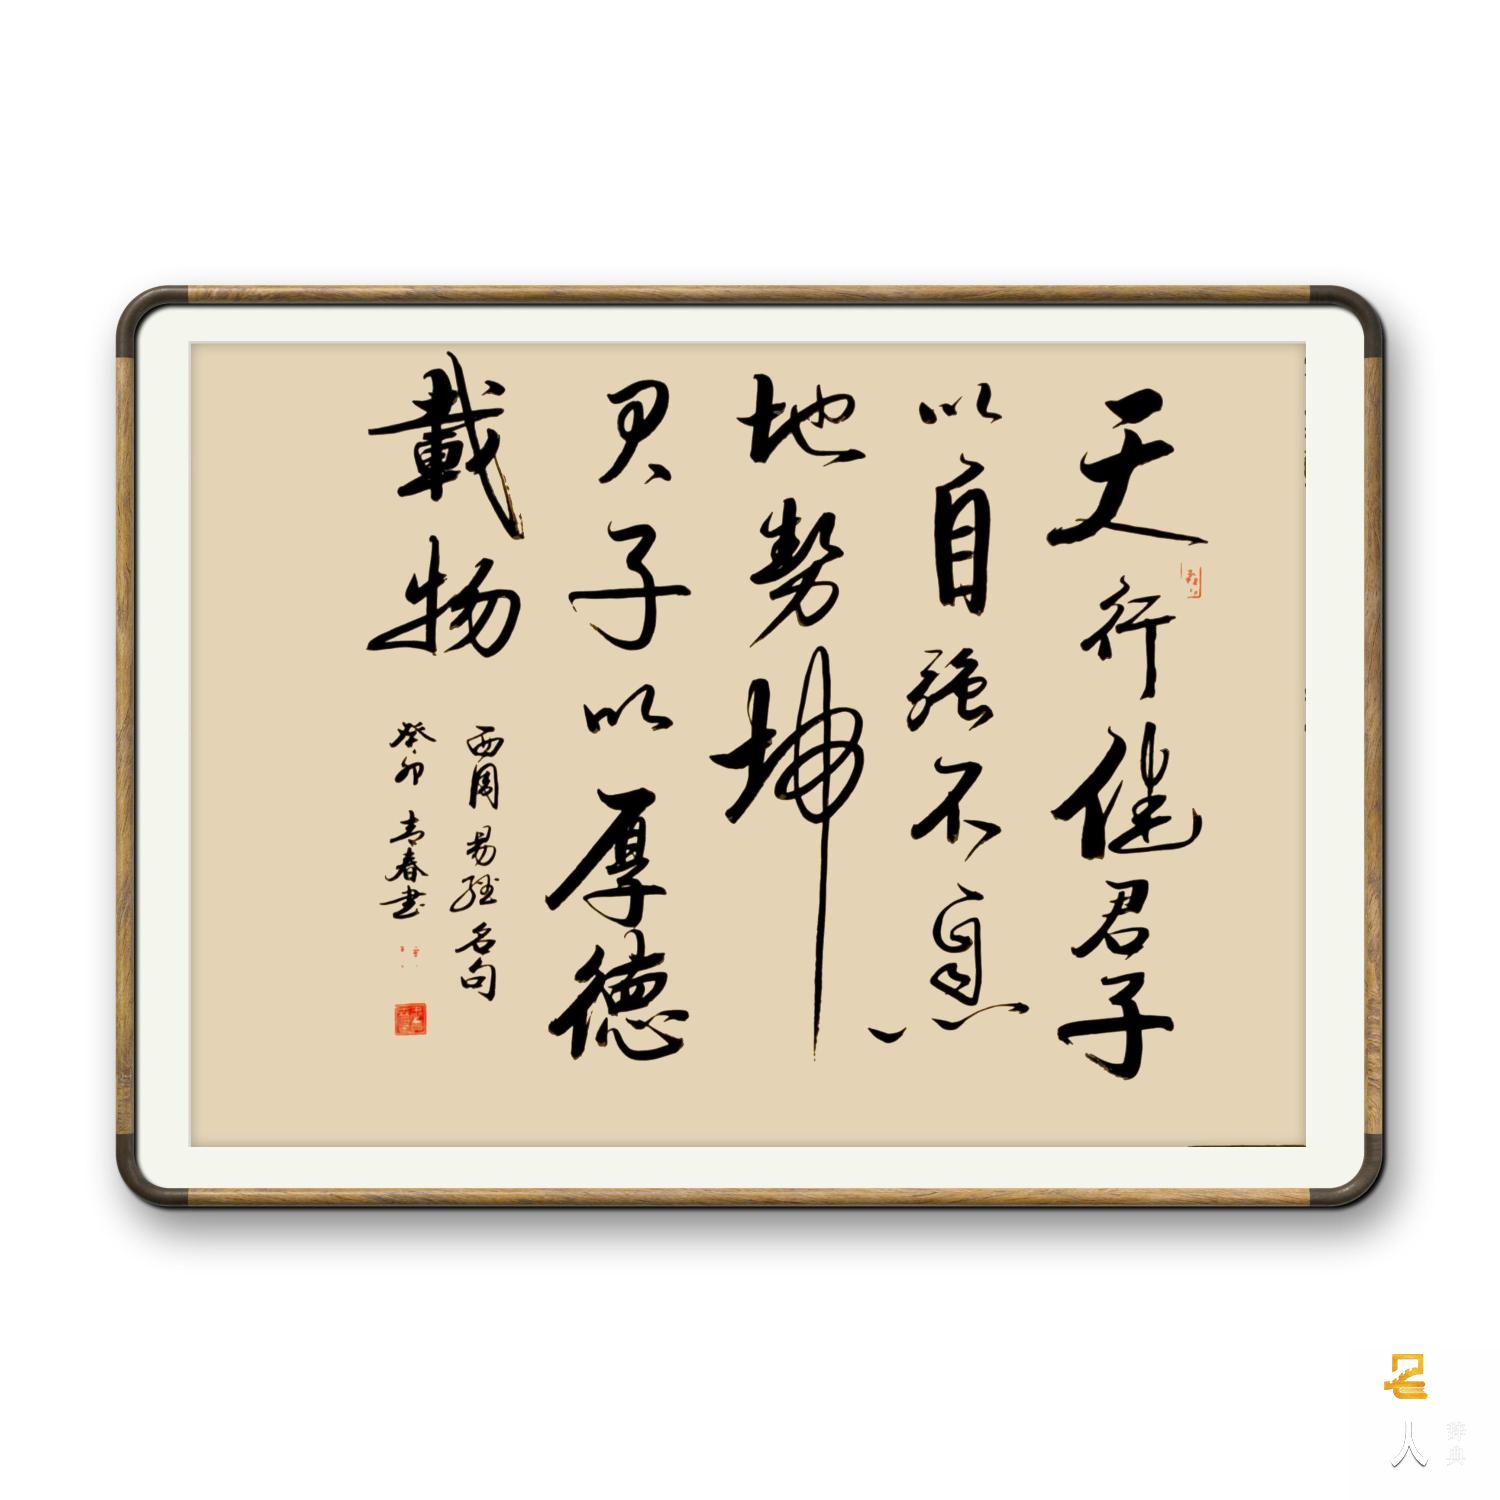 天行健君子
以自强不息
地势坤
君子以厚德
載物
西周易經名句
癸卯青春书
人
辞典